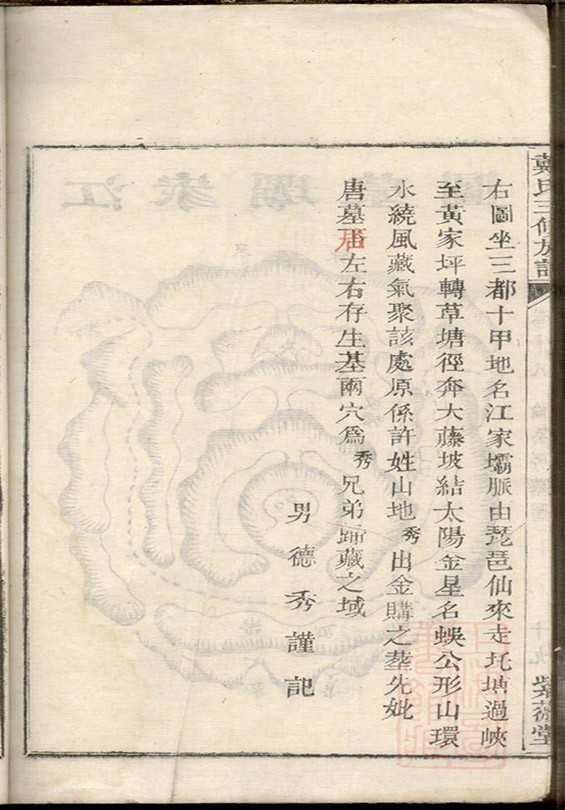 戴氏三修族譜
紫薇堂
右圖坐三都十甲地名江家壩脈由琵琶仙來走圫塘過峽
至黃家坪轉草塘徑奔大藤坡結太陽金星名蜈公形山環
水繞風藏氣聚該處原係許姓山地秀出金購之塟先妣
唐墓居左右存生基兩穴爲秀兄弟歸藏之域
男德秀謹記
江家壩